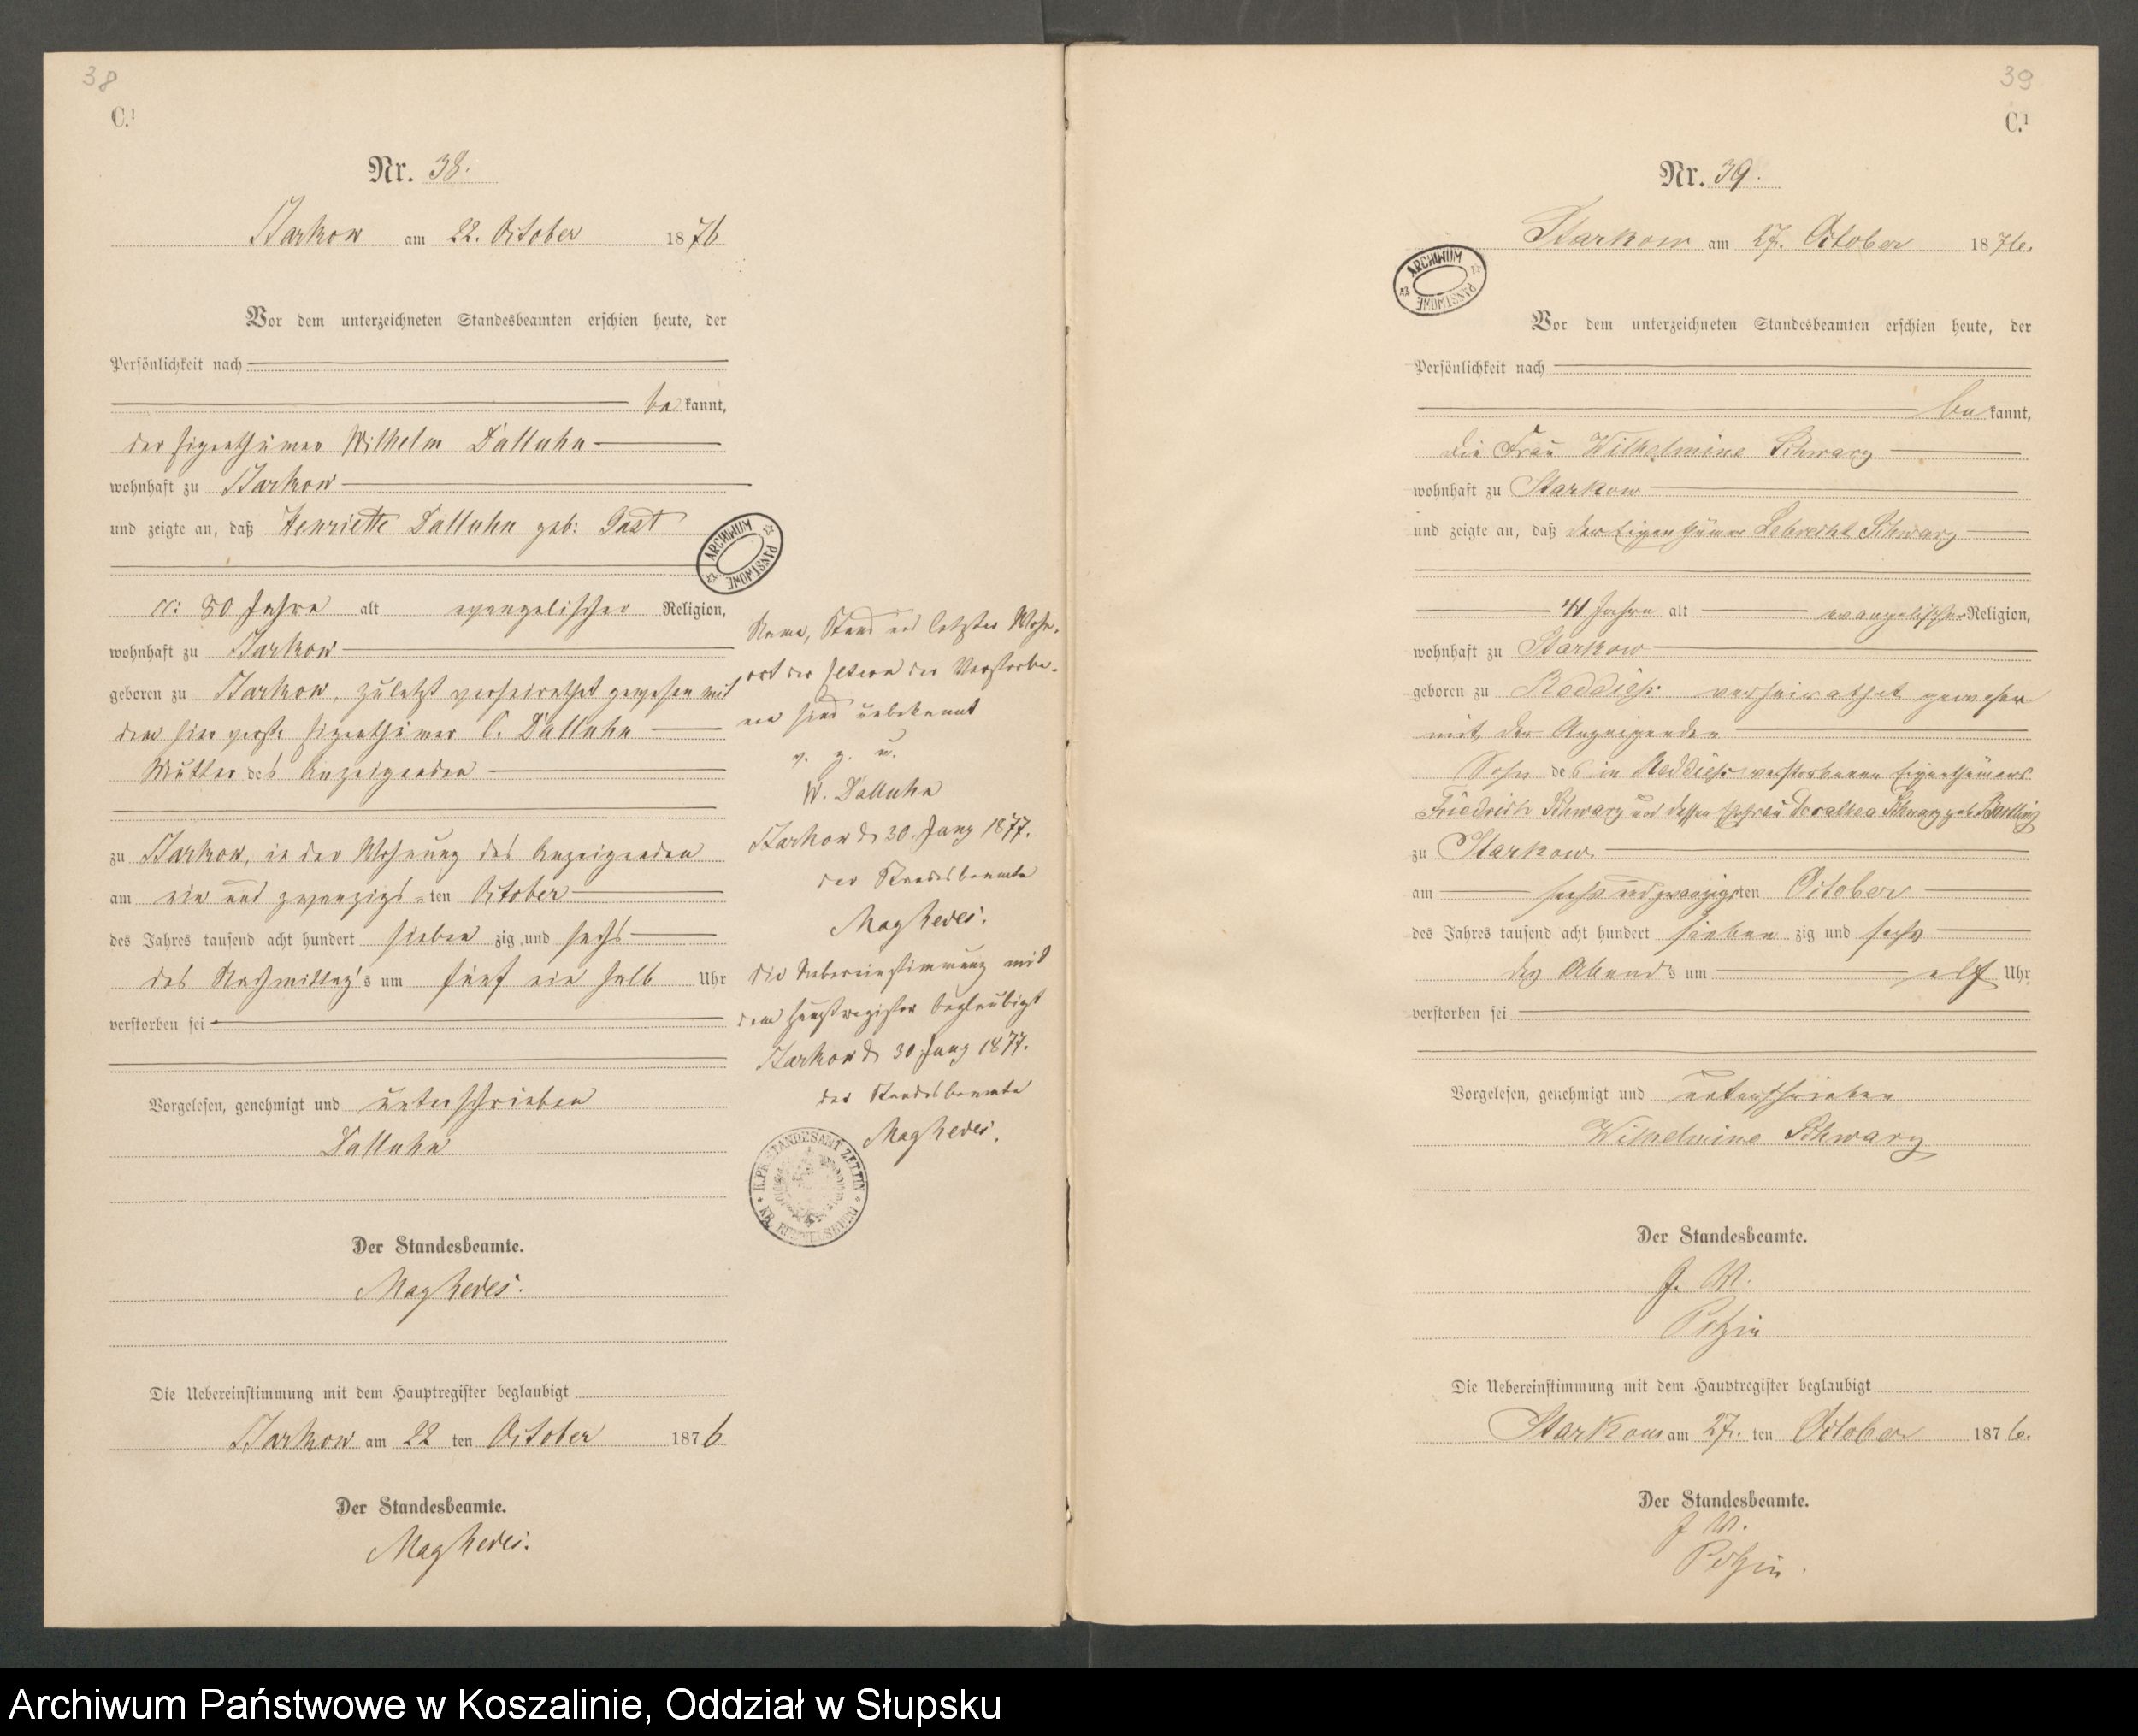 38
C.¹
Nr. 38.
Starkow am 22. October 1876
Vor dem unterzeichneten Standesbeamten erschien heute, der
Persönlichkeit nach
bekannt,
der Eigenthümer Wilhelm Dalluhn
wohnhaft zu Starkow
und zeigte an, daß Henriette Dalluhn geb: Gast
cc: 80 Jahre alt evangelischer Religion,
wohnhaft zu Starkow
geboren zu Starkow, zuletzt verheirathet gewesen mit
dem hier verst. Eigenthümer C. Dalluhn
Mutter des Anzeigenden
zu Starkow, in der Wohnung des Anzeigenden
am ein und zwanzigs-ten October
des Jahres tausend acht hundert sieben zig und sechs
des Nachmittag's um fünf ein halb Uhr
verstorben sei
Vorgelesen, genehmigt und unterschrieben
Dalluhn
Der Standesbeamte.
Die Uebereinstimmung mit dem Hauptregister beglaubigt
Starkow am 22 ten October 1876
Der Standesbeamte.
Name, Stand und letzter Wohn-
ort der Eltern der Verstorbe-
nen sind unbekannt
v. g. u.
W. Dalluhn
Starkow d. 30. Jany 1877.
der Standesbeamte
die Uebereinstimmung mit
dem Hauptregister beglaubigt
Starkow d. 30 Jany 1877.
der Standesbeamte
K. PR. STANDESAMT ZETTIN
KR. RUMMELSBURG
ARCHIWUM PAŃSTWOWE
39
C.¹
Nr. 39.
Starkow am 27. October 1876.
ARCHIWUM PAŃSTWOWE
Vor dem unterzeichneten Standesbeamten erschien heute, der
Persönlichkeit nach
bekannt,
die Frau Wilhelmine Schwarz
wohnhaft zu Starkow
und zeigte an, daß der Eigenthümer Lebrecht Schwarz
41 Jahre alt evangelischer Religion,
wohnhaft zu Starkow
geboren zu Reddies verheirathet gewesen
mit der Anzeigenden
Sohn des in Reddies verstorbenen Eigenthümers
Friedrich Schwarz und dessen Ehefrau Dorathea Schwarz geb.
zu Starkow.
am sechsundzwanzigsten October
des Jahres tausend acht hundert sieben zig und sechs
des Abend's um elf Uhr
verstorben sei
Vorgelesen, genehmigt und unterschrieben
Wilhelmine Schwarz
Der Standesbeamte.
J. V.
Die Uebereinstimmung mit dem Hauptregister beglaubigt
Starkow am 27. ten October 1876.
Der Standesbeamte.
J. V.
Archiwum Państwowe w Koszalinie, Oddział w Słupsku